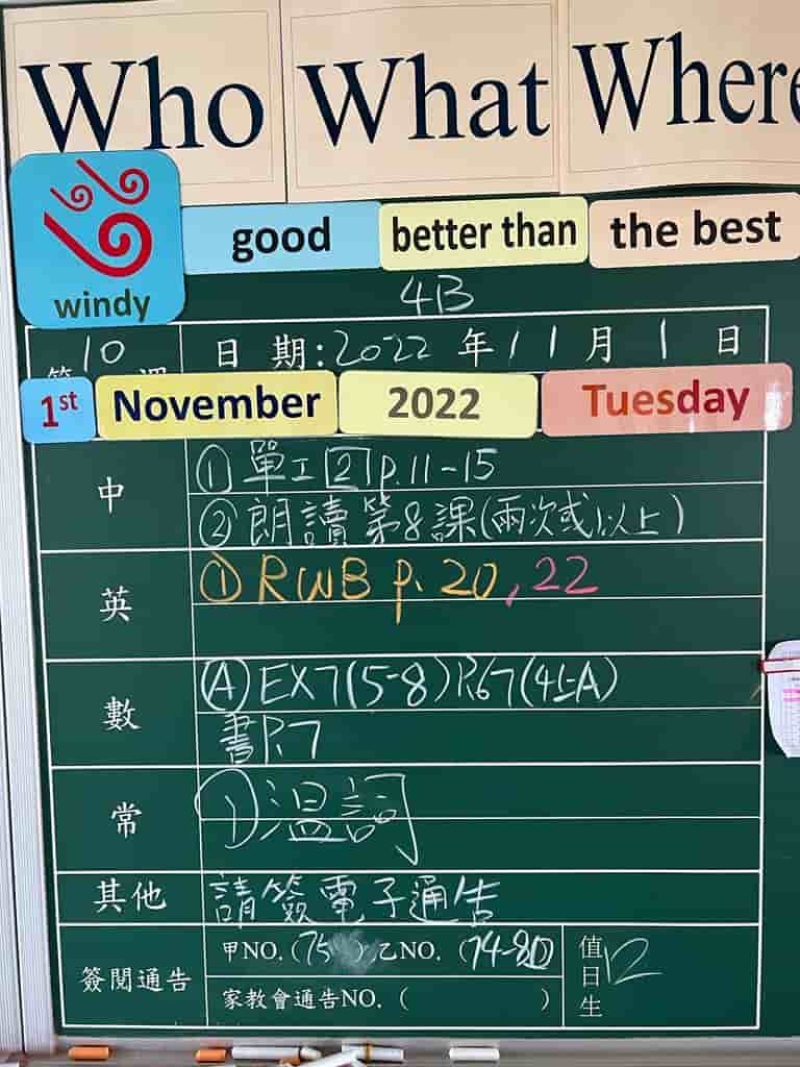 Who What Where
windy good better than the best
4B
10 日期:2022年11月1日
1st November 2022 Tuesday
中 ①單工2 p.11-15
②朗讀第8課(兩次或以上)
英 ①RWB p.20,22
數 Ⓐ EX7(5-8) P.67(4上A)
書P.7
常 ①溫詞
其他 請簽電子通告
簽閱通告 甲NO.(75 ),乙NO.(74-80)
家教會通告NO.( )
值日生 12